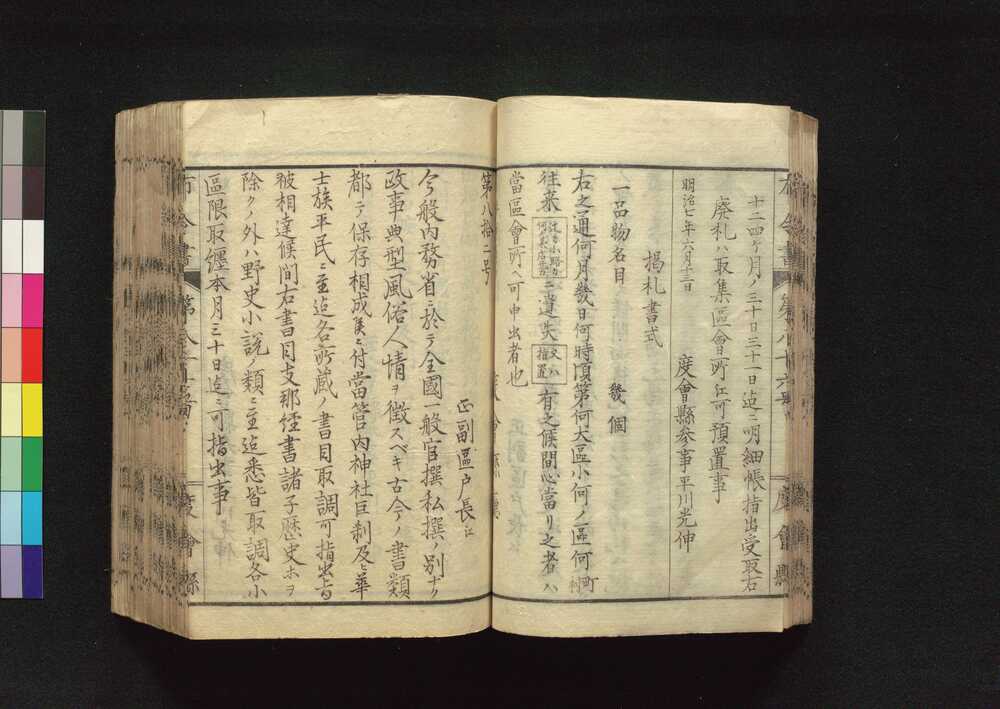 十二四ケ月ノ三十日三十一日迄ニ明細帳指出受取右
廃札ハ取集區會所江可預置事
明治七年六月十二日
度會縣参事平川光伸
掲札書式
一品物名目
幾個
右之通何月幾日何時頃第何大區小何ノ區何町村
往来ニ遺失又ハ指置有之候間心當リ之者ハ
當區會所ヘ可申出者也
第八拾二号
正副區戸長江
今般内務省ニ於テ全國一般官撰私撰ノ別ナク
政事典型風俗人情ヲ徴スベキ古今ノ書類
都テ保存相成候ニ付當管内神社巨刹及ヒ華
士族平民ニ至迄各所蔵ノ書目取調可指出旨
被相達候間右書目支那経書諸子歴史ホヲ
除クノ外ハ野史小説ノ類ニ至迄悉皆取調各小
區限取纏本月三十日迄ニ可指出事
度會縣